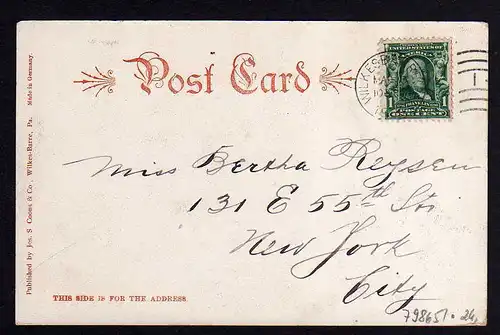 Post Card
UNITED STATES OF AMERICA
FRANKLIN
POSTAGE
1 ONE CENT 1
WILKES-BA
Miss Bertha Reysen
131 E 55th Str
New York
City
THIS SIDE IS FOR THE ADDRESS
Published by Jos. S Coons & Co., Wilkes-Barre, Pa. Made in Germany.
798651 · 24,